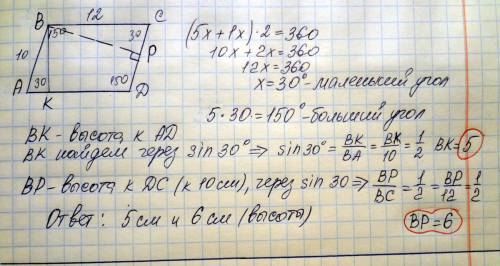 B 12 C
150 30
10 P
A 30 150 D
K
(5x+1x)·2=360
10x+2x=360
12x=360
x=30°-маленький угол
5·30=150°-больший угол
BK-высота к AD
BK найдем через sin30° ⇒ sin30°= BK/BA = BK/10 = 1/2 BK=5
BP-высота к DC (к 10см), через sin30 ⇒ BP/BC = 1/2 = BP/12 = 1/2
Ответ: 5см и 6см (высоты) BP=6